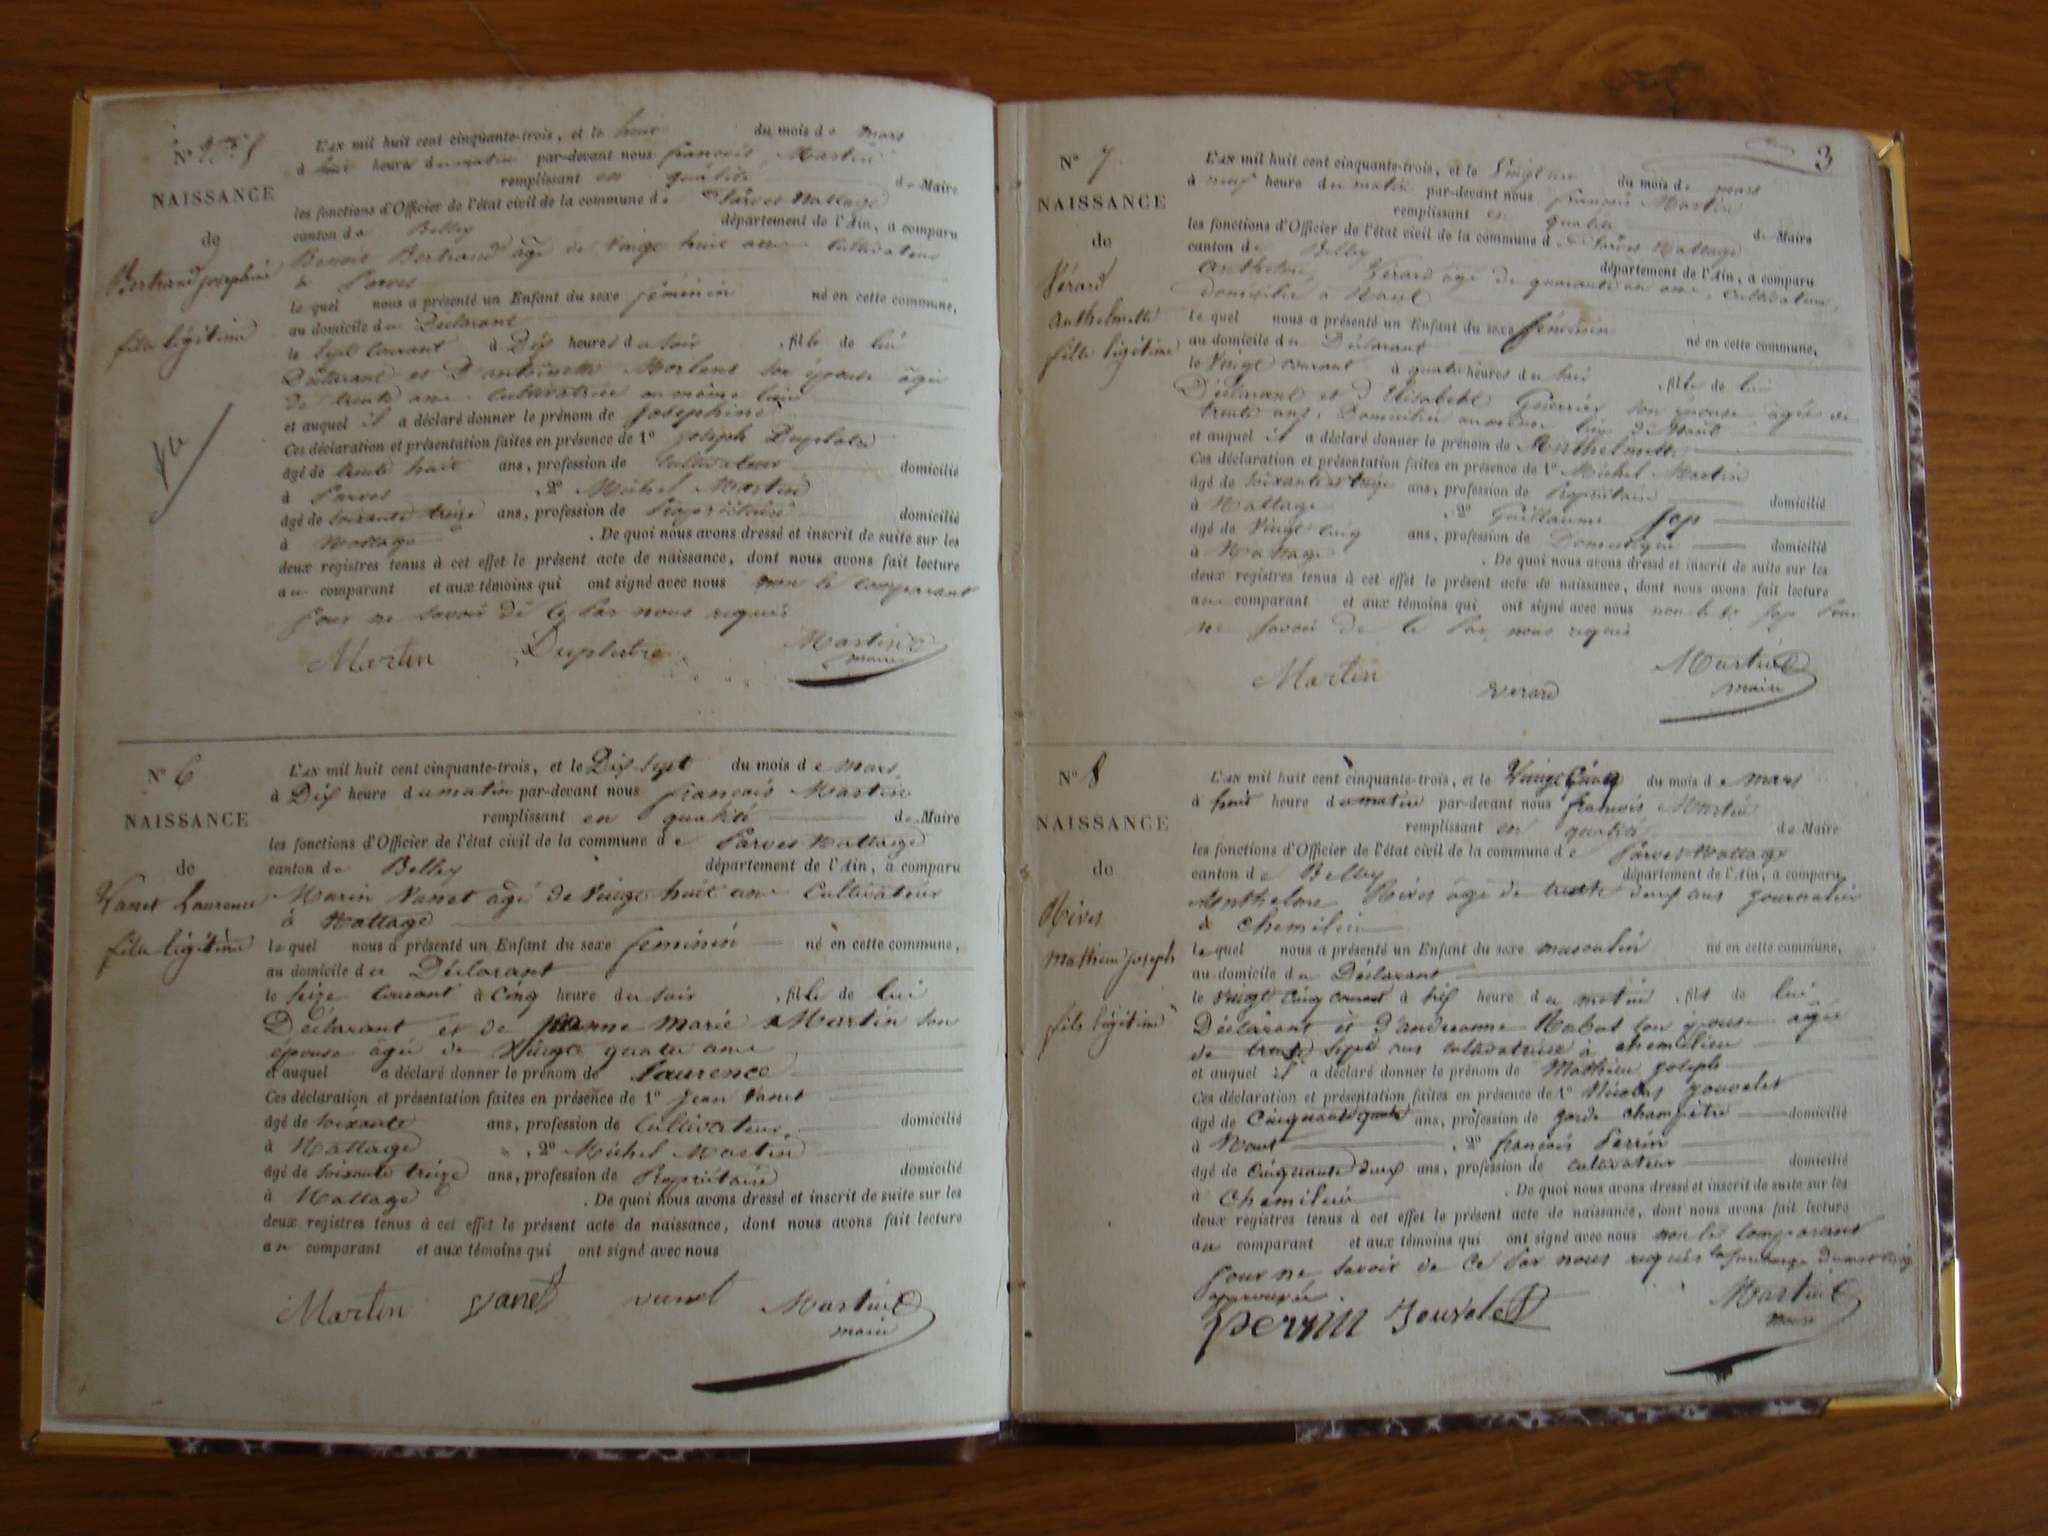 N° 5
NAISSANCE
de
Bertrand Josephine
fille légitime
L'AN mil huit cent cinquante-trois, et le huit du mois de mars
à huit heure du matin par-devant nous françois Martin
remplissant en qualité de Maire
les fonctions d'Officier de l'état civil de la commune de Parves Nattage
canton de Belley département de l'Ain, a comparu
Benoit Bertrand âgé de vingt huit ans cultivateur
à Parves
le quel nous a présenté un Enfant du sexe féminin né en cette commune,
au domicile du Déclarant
le sept courant à Dix heures du soir , fille de lui
Déclarant et d'antoinette son épouse âgée
de trente ans cultivatrice au même lieu
et auquel il a déclaré donner le prénom de Josephine
Ces déclaration et présentation faites en présence de 1° joseph
âgé de trente huit ans, profession de Cultivateur domicilié
à Parves , 2° Michel Martin
âgé de soixante treize ans, profession de Propriétaire domicilié
à Nattage . De quoi nous avons dressé et inscrit de suite sur les
deux registres tenus à cet effet le présent acte de naissance, dont nous avons fait lecture
au comparant et aux témoins qui ont signé avec nous non le comparant
pour ne savoir de ce par nous requis
Martin Martin
maire
N° 6
NAISSANCE
de
Vanet Laurence
fille légitime
L'AN mil huit cent cinquante-trois, et le Dix sept du mois de Mars
à Dix heure du matin par-devant nous françois Martin
remplissant en qualité de Maire
les fonctions d'Officier de l'état civil de la commune de Parves Nattage
canton de Belley département de l'Ain, a comparu
Marin Vanet âgé de vingt huit ans Cultivateur
à Nattage
le quel nous a présenté un Enfant du sexe feminin né en cette commune,
au domicile du Déclarant
le seize courant à cinq heure du soir , fille de lui
Déclarant et de jeanne marie Martin son
épouse âgée de vingt quatre ans
et auquel a déclaré donner le prénom de Laurence
Ces déclaration et présentation faites en présence de 1° jean Vanet
âgé de soixante ans, profession de Cultivateur domicilié
à Nattage , 2° Michel Martin
âgé de soixante treize ans, profession de Propriétaire domicilié
à Nattage . De quoi nous avons dressé et inscrit de suite sur les
deux registres tenus à cet effet le présent acte de naissance, dont nous avons fait lecture
au comparant et aux témoins qui ont signé avec nous
Martin vanet vanet Martin
maire
3
N° 7
NAISSANCE
de
Vérard
anthelmette
fille légitime
L'AN mil huit cent cinquante-trois, et le du mois de mars
à neuf heure du matin par-devant nous françois Martin
remplissant en qualité de Maire
les fonctions d'Officier de l'état civil de la commune de Parves Nattage
canton de Belley département de l'Ain, a comparu
anthelme Vérard âgé de quarante un ans, cultivateur,
domicilié à Nant
le quel nous a présenté un Enfant du sexe féminin né en cette commune,
au domicile du Déclarant
le vingt courant à quatre heures du soir , fille de lui
Déclarant et d'Elisabeth Guerrier son épouse âgée de
trente ans, Domiciliée au même lieu de Nant
et auquel il a déclaré donner le prénom de Anthelmette
Ces déclaration et présentation faites en présence de 1° Michel Martin
âgé de soixante et treize ans, profession de Propriétaire domicilié
à Nattage , 2° Guillaume Jop
âgé de vingt cinq ans, profession de Domestique domicilié
à Nattage . De quoi nous avons dressé et inscrit de suite sur les
deux registres tenus à cet effet le présent acte de naissance, dont nous avons fait lecture
au comparant et aux témoins qui ont signé avec nous non le Sr Jop pour
ne savoir de ce par nous requis
Martin verard Martin
maire
N° 8
NAISSANCE
de
Rives
mathieu joseph
fils légitime
L'AN mil huit cent cinquante-trois, et le Vingt Cinq du mois de mars
à huit heure du matin par-devant nous françois Martin
remplissant en qualité de Maire
les fonctions d'Officier de l'état civil de la commune de Parves Nattage
canton de Belley département de l'Ain, a comparu
Anthelme Rives âgé de trente neuf ans journalier
à chemilieu
le quel nous a présenté un Enfant du sexe masculin né en cette commune,
au domicile du Déclarant
le vingt cinq courant à six heure du matin , fils de lui
Déclarant et d'andreanne Rabut son épouse âgée
de trente sept ans cultivatrice à chemilieu
et auquel il a déclaré donner le prénom de Mathieu joseph
Ces déclaration et présentation faites en présence de 1° Nicolas jouvelet
âgé de cinquante quatre ans, profession de garde champêtre domicilié
à Nant , 2° françois Perrin
âgé de cinquante neuf ans, profession de cultivateur domicilié
à Chemilieu . De quoi nous avons dressé et inscrit de suite sur les
deux registres tenus à cet effet le présent acte de naissance, dont nous avons fait lecture
au comparant et aux témoins qui ont signé avec nous non le comparant
pour ne savoir de ce par nous requis la surcharge du mot cinq
approuvée
perrin Jouvelet Martin
maire